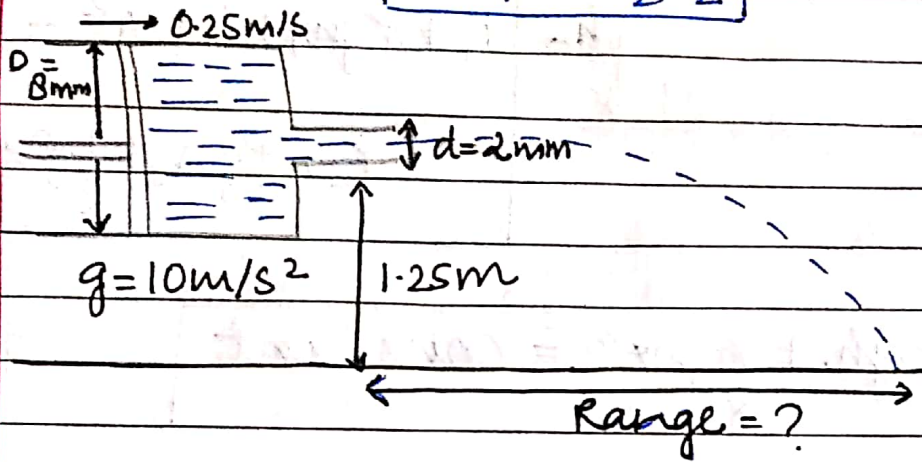 0.25m/s
D =
8mm
d=2mm
g=10m/s²
1.25m
Range = ?